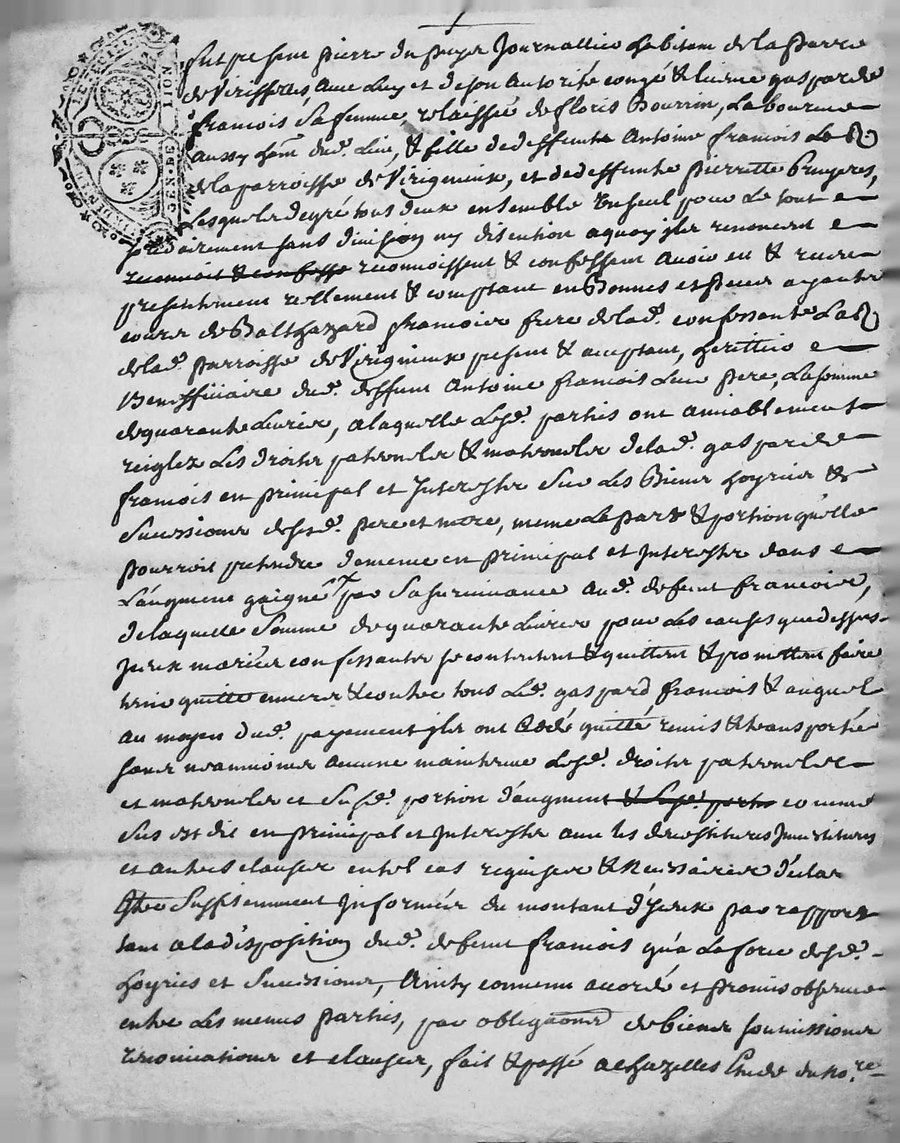 GEN DE LION
fut present pierre du puys Journallier habitant de la parre
de Virisselles, avec luy et de son autorité congé & licence gasparde
francois sa femme, relaissée de floris Bourrin, Laboureur
aussy hâm dud. lieu, & fille de deffunt Antoine francois Lab
de la parroisse de Virigneux, et de deffunte pierrette Bruyeres,
Lesquels de gré tous deux ensemble un seul pour le tout
solidairement sans division ny discution a quoy jls renoncent
reconnoit & confesse reconnoissent & confessent avoir eu & receu
presentement reellement & comptant en Bonnes especes ayants
cours de Balthazard francois frere de lad. confessante Lab
de lad. parroisse de Virigneux present & acceptant, heritier
Beneffitiaire dud. deffunt Antoine francois leur pere, La somme
de quarante Livres, a laquelle lesd. partis ont amiablement
reiglez les droits paternels & maternels de lad. gasparde
francois en principal et Interests sur les Biens hoyries &
successions desd. pere et mere, meme la part & portion qu'elle
pourroit pretendre de meme en principal et Interests dans
L'augment gaigné par sa survivance aud. defunt francois,
de laquelle somme de quarante Livres pour les causes que dessus
Jceux mariés confessants se contentent & quittent & promettent faire
tenir quitte envers & contre tous led. gaspard francois & auquel
au moyen dud. payement jls ont cédé quitté remis & transporté
sans neanmoins aucune maintenue lesd. droits paternels
et maternels et susd. portion d'augment & lesd. parts comme
sus est dit en principal et Interests avec les devestitures Jnvestitures
et autres clauses en tel cas requises & necessaires d'eclar
être suffisemment Informés du montant d'yceux par rapport
tant a la disposition dud. defunt francois qu'a la force desd.
hoyries et successions, Ainsy convenu accordé et promis observer
entre les memes partis, par obligaons de biens soumissions
renonciations et clauses, fait & passé a Chazelles Etude du no.re